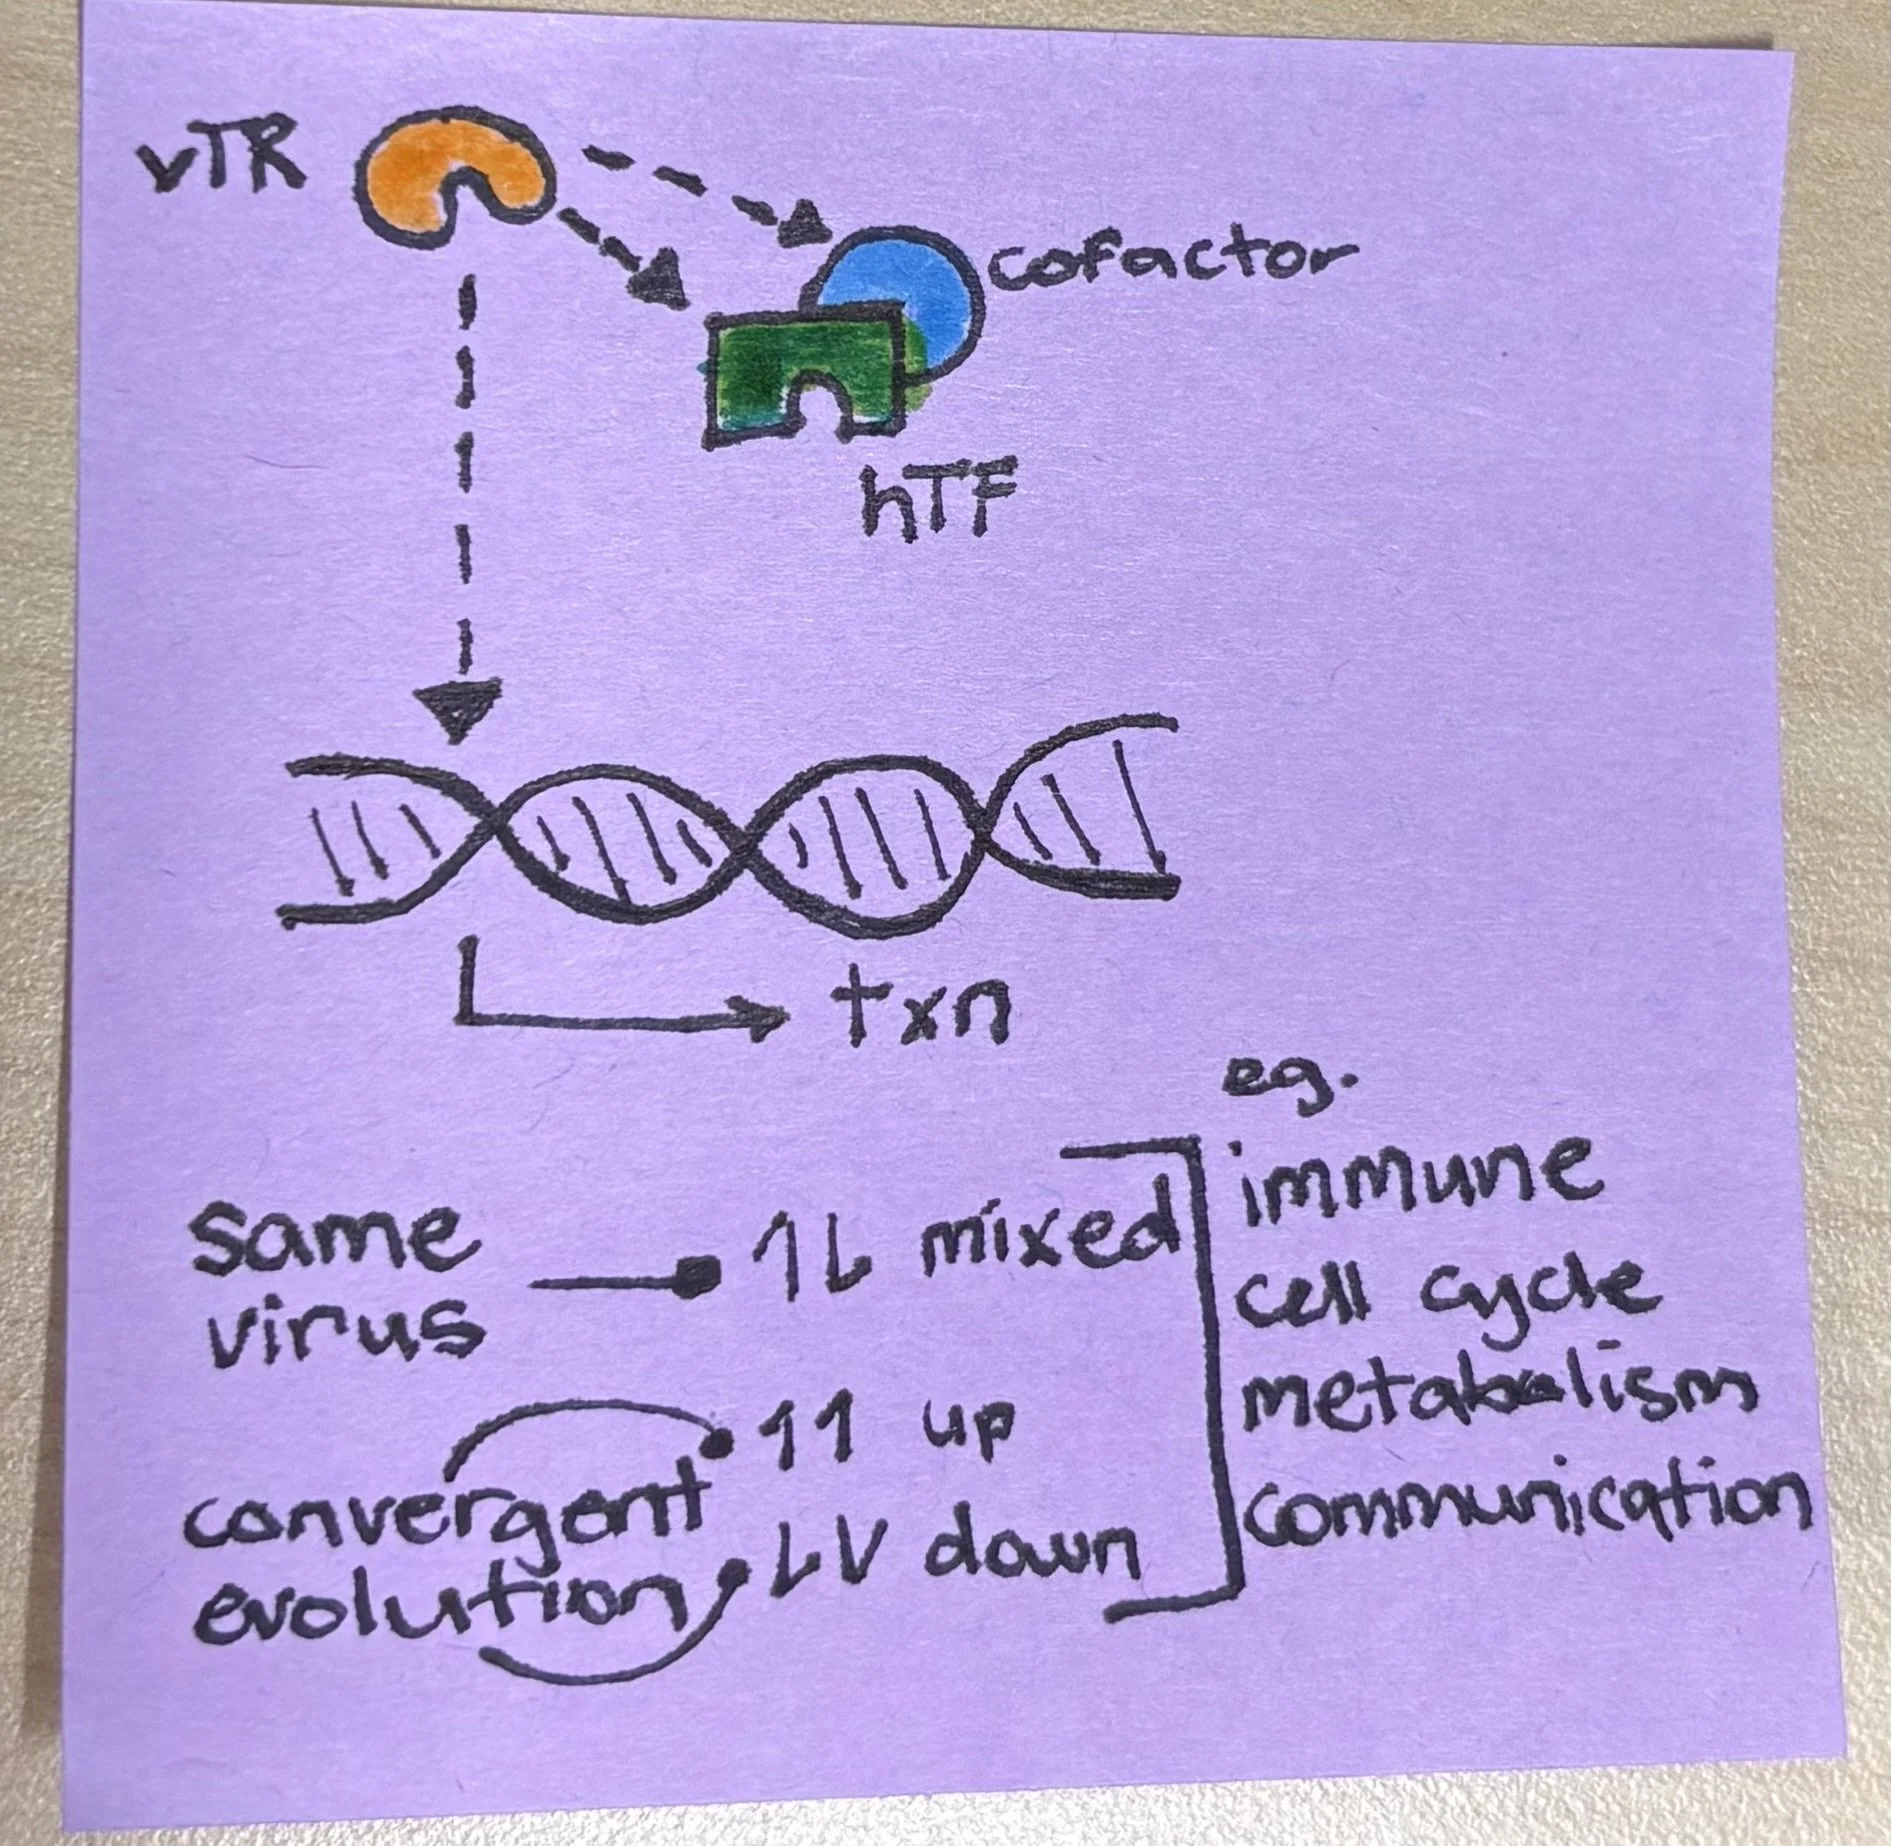 vTR
cofactor
hTF
txn
eg.
same
virus
↑↓ mixed
convergent
evolution
↑↑ up
↓↓ down
immune
cell cycle
metabolism
communication